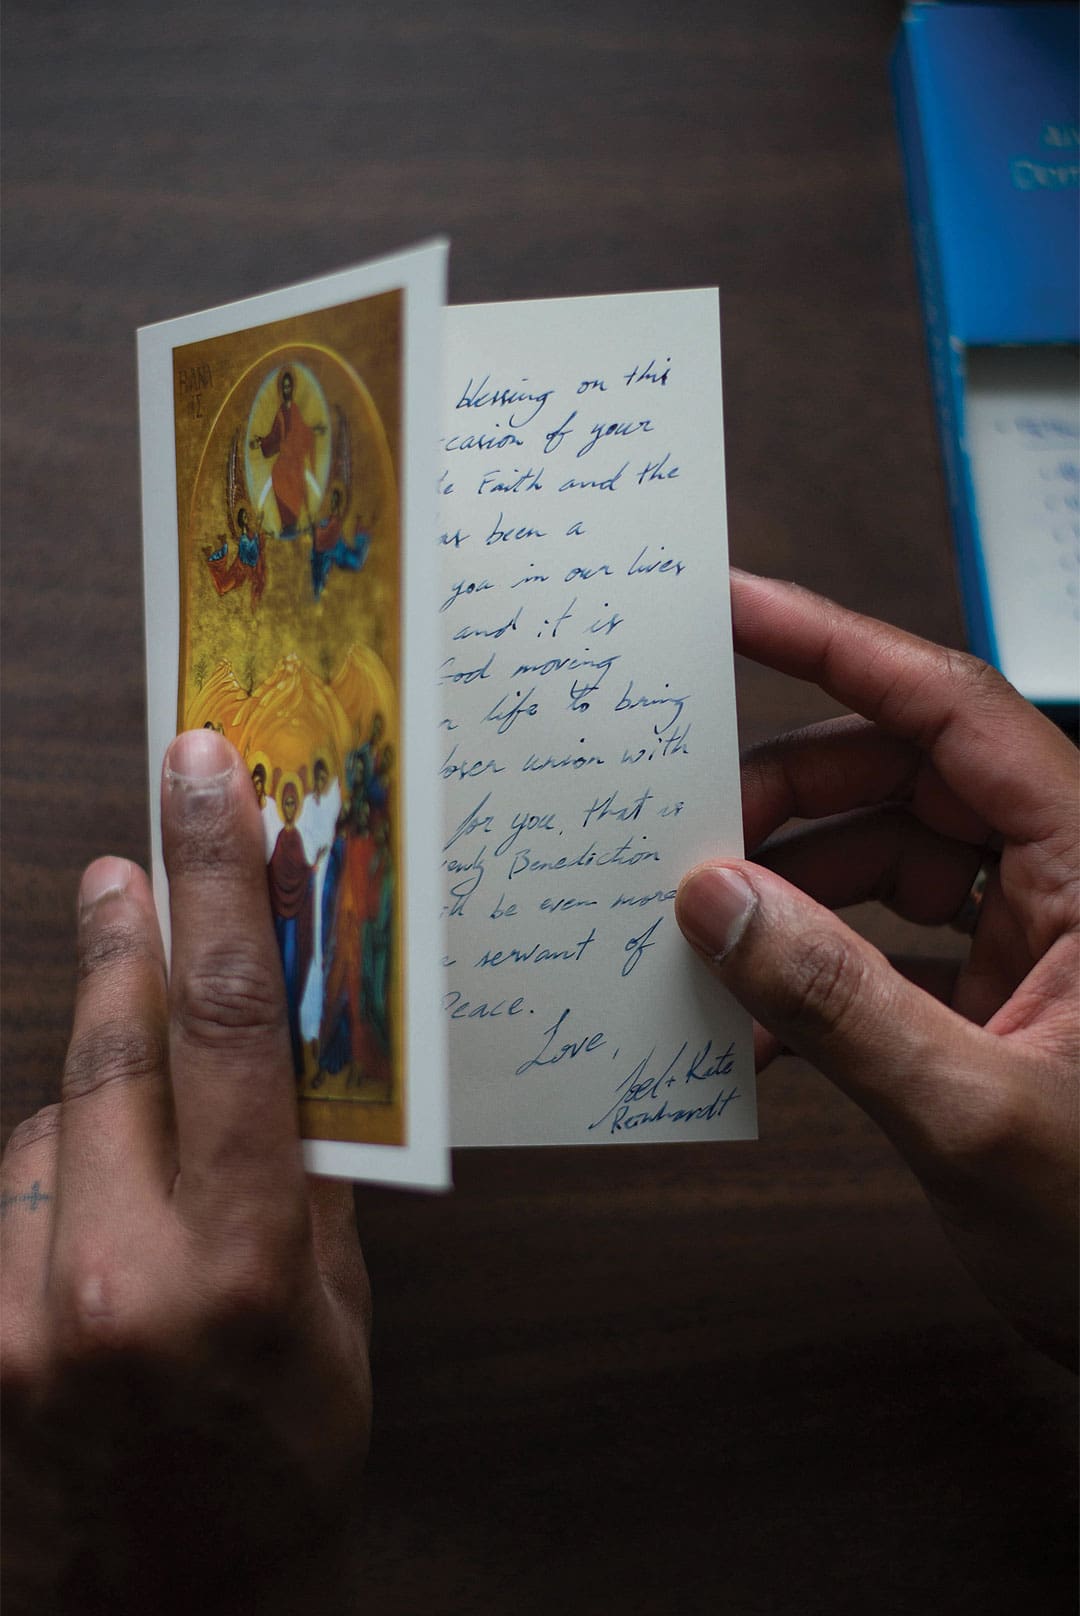 blessing on this
casion of your
Faith and the
been a
you in our lives
and it is
God moving
life to bring
loser union with
for you, that is
Benediction
be even more
servant of
Peace.
Love,
Joel + Kate
Reinhardt